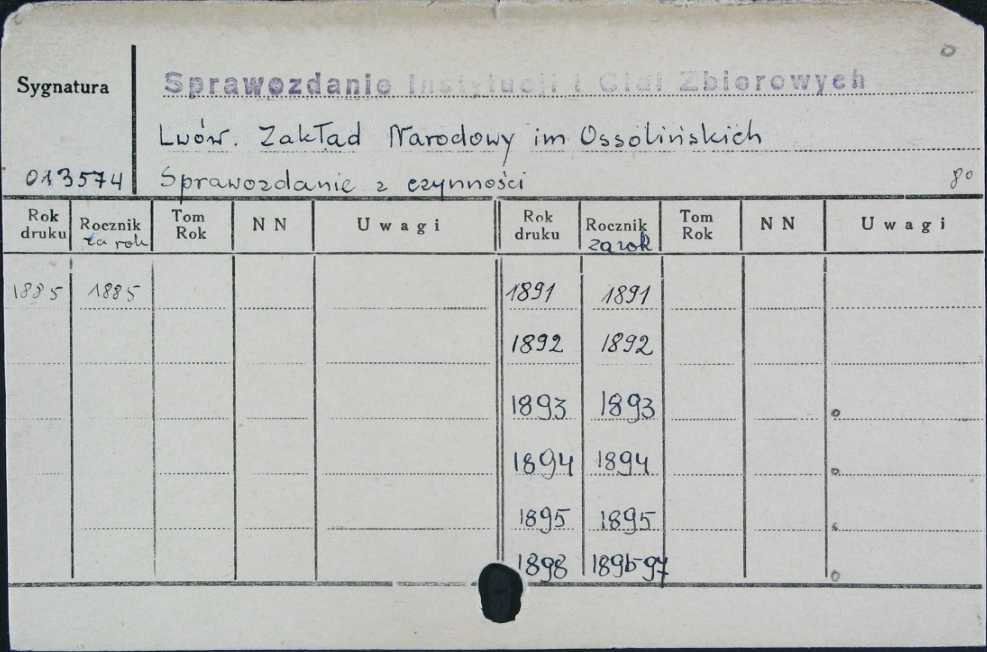 Sygnatura
Sprawozdanie Instytucji i Ciał Zbiorowych
Lwów. Zakład Narodowy im Ossolińskich
013574 Sprawozdanie z czynności 80
Rok druku Rocznik za rok Tom Rok NN Uwagi Rok druku Rocznik za rok Tom Rok NN Uwagi
1885 1885 1891 1891
1892 1892
1893 1893
1894 1894
1895 1895
1898 1896-97